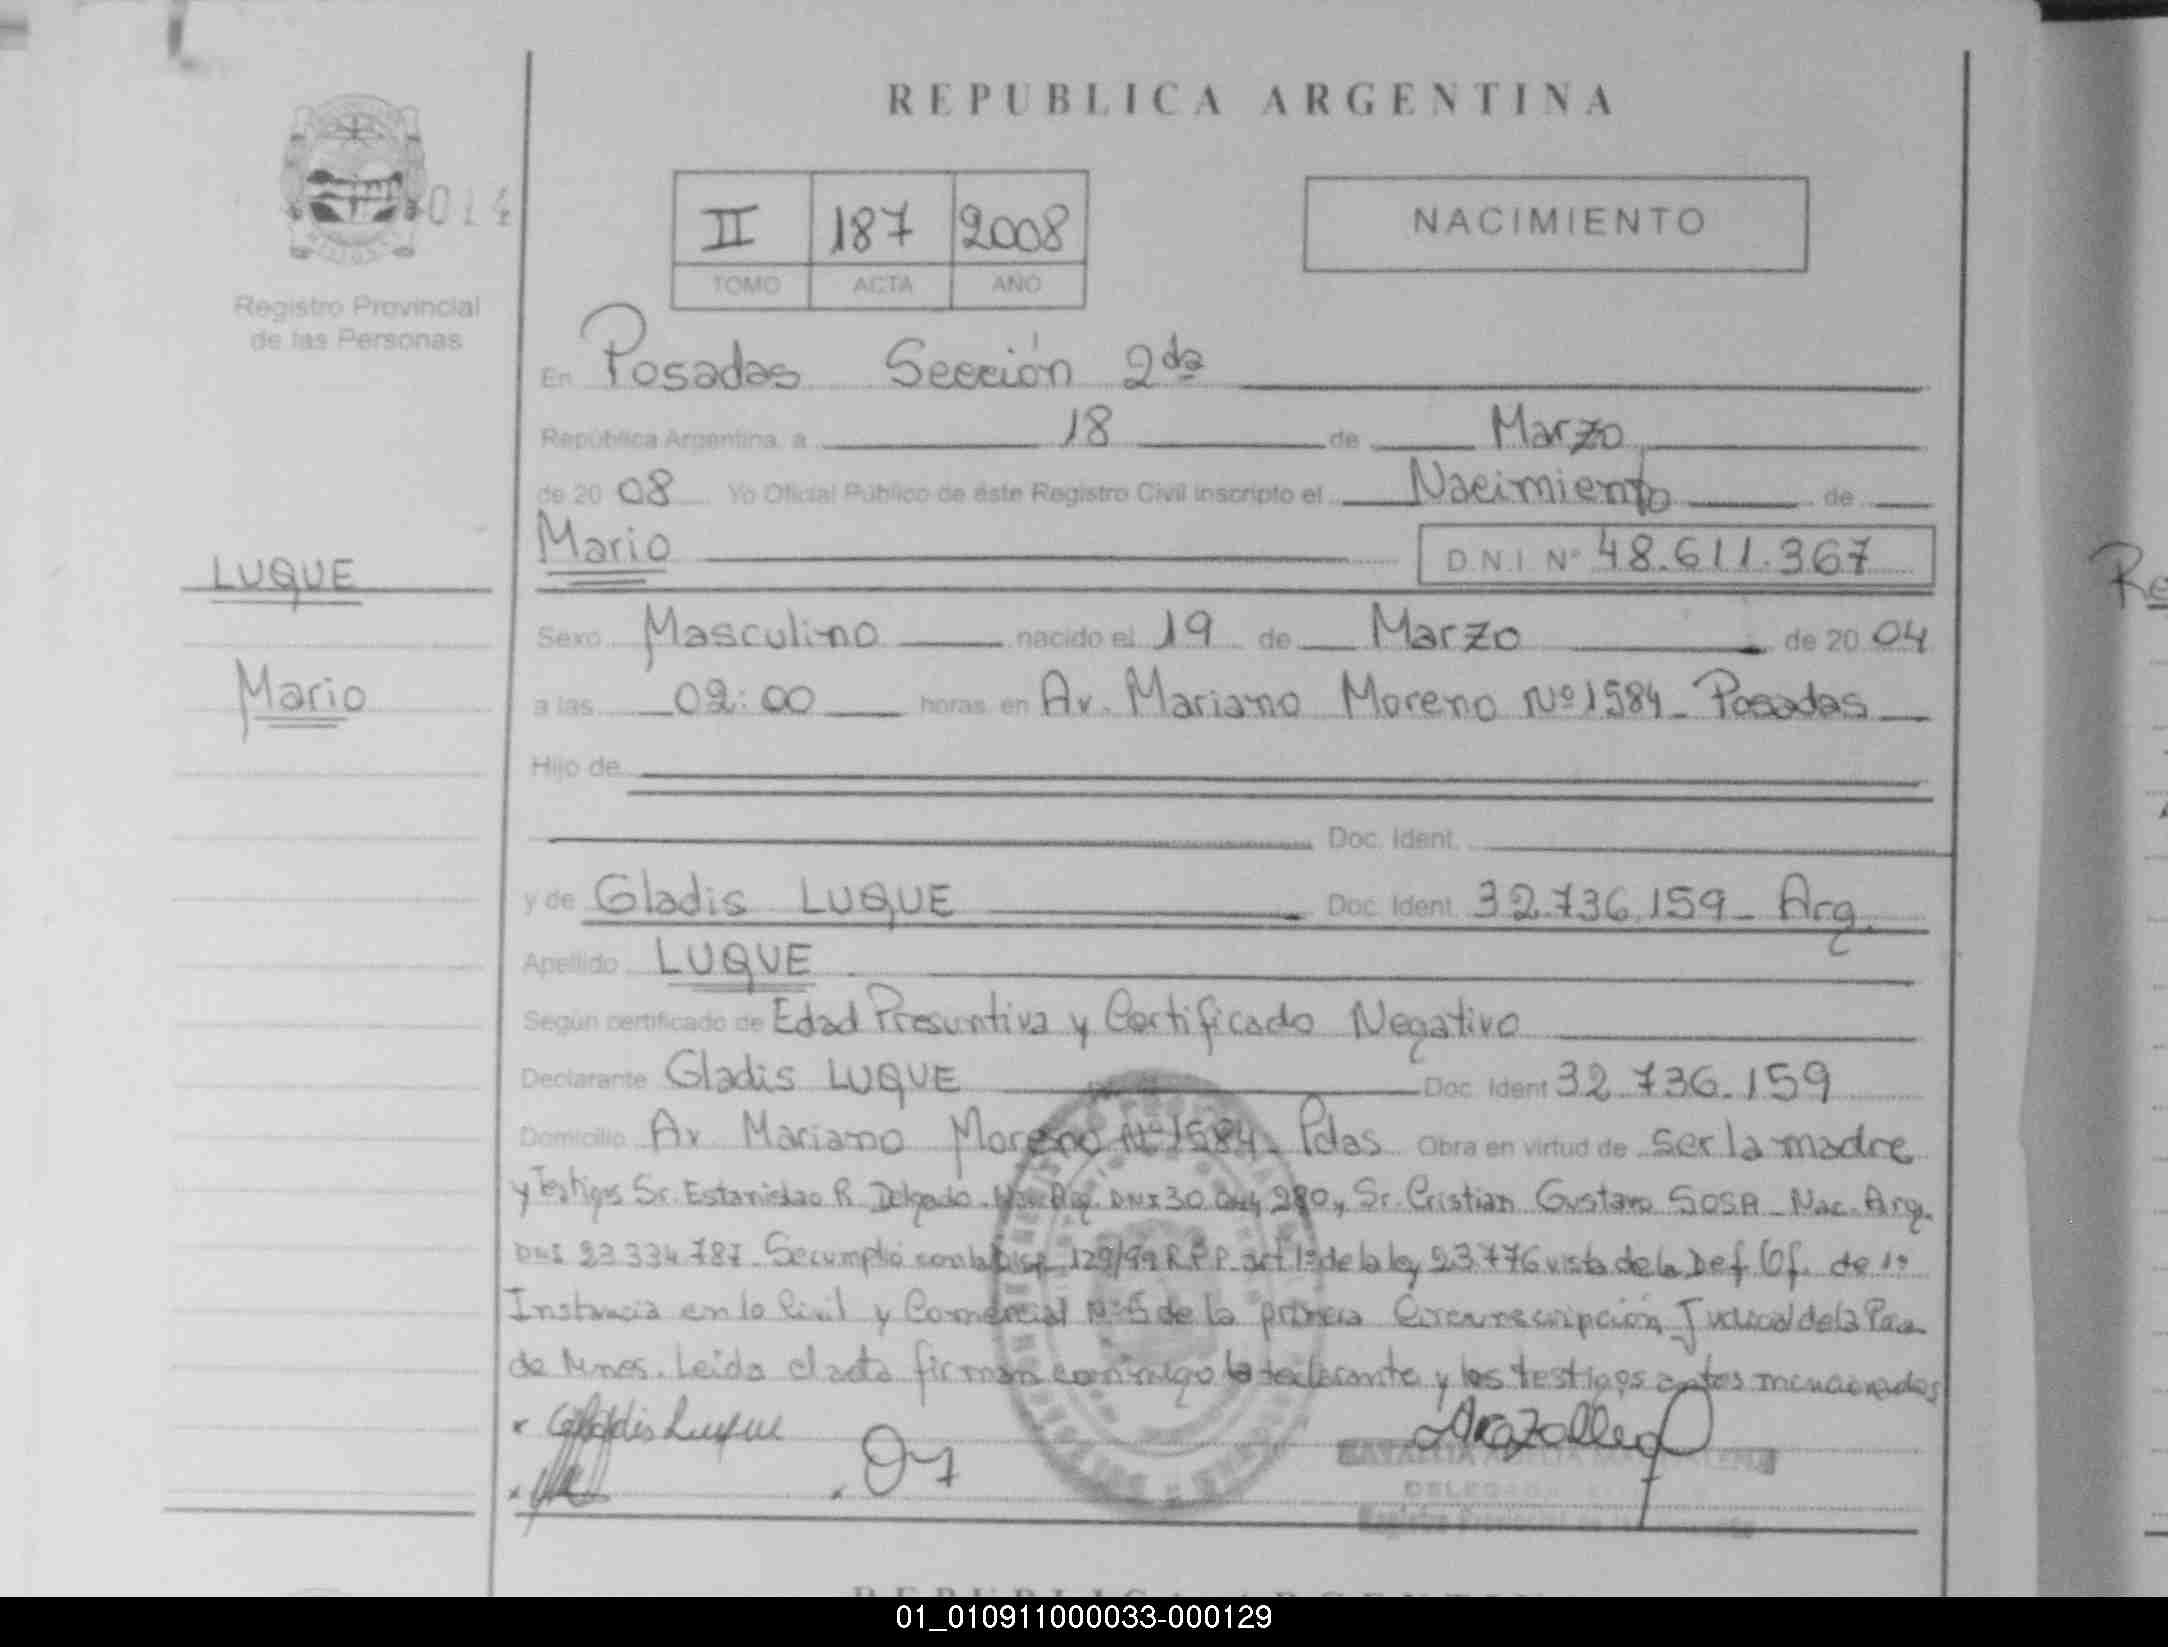 REPUBLICA ARGENTINA
014
Registro Provincial
de las Personas
II 187 2008
TOMO ACTA AÑO
NACIMIENTO
En Posadas Sección 2da
República Argentina, a 18 de Marzo
de 20 08 Yo Oficial Público de éste Registro Civil inscripto el Nacimiento de
Mario D.N.I. Nº 48.611.367
LUQUE
Mario
Sexo Masculino nacido el 19 de Marzo de 20 04
a las 02:00 horas en Av. Mariano Moreno Nº 1584 - Posadas
Hijo de
Doc. Ident.
y de Gladis LUQUE Doc. Ident. 32.736.159 - Arg.
Apellido LUQUE
Según certificado de Edad Presuntiva y Certificado Negativo
Declarante Gladis LUQUE Doc. Ident 32.736.159
Domicilio Av Mariano Moreno Nº 1584 - Pdas Obra en virtud de ser la madre
y Testigos Sr. Estanislao R. Delgado - Nac. Arg. DNI 30 280, Sr. Cristian Gustavo SOSA - Nac. Arg.
DNI 23 334 787 - Se cumplió con la Disp. 129/99 R.P.P. art 1º de la ley 23.776 vista de la Def. Of. de 1º
Instancia en lo Civil y Comercial Nº 5 de la primera Circunscripción Judicial de la Pcia
de Mnes. Leída el acta firman conmigo la declarante y los testigos antes mencionados
Gladis Luque
DELEGADA
Registro Provincial de las Personas
Re
01_010911000033-000129